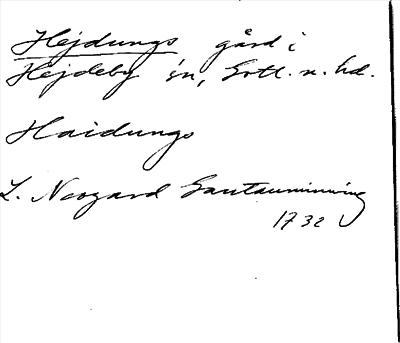 Hejdungs gård i
Hejdeby sn, Gotl. n. hd.
Haidungs
L. Neogard Gautauminning
1732